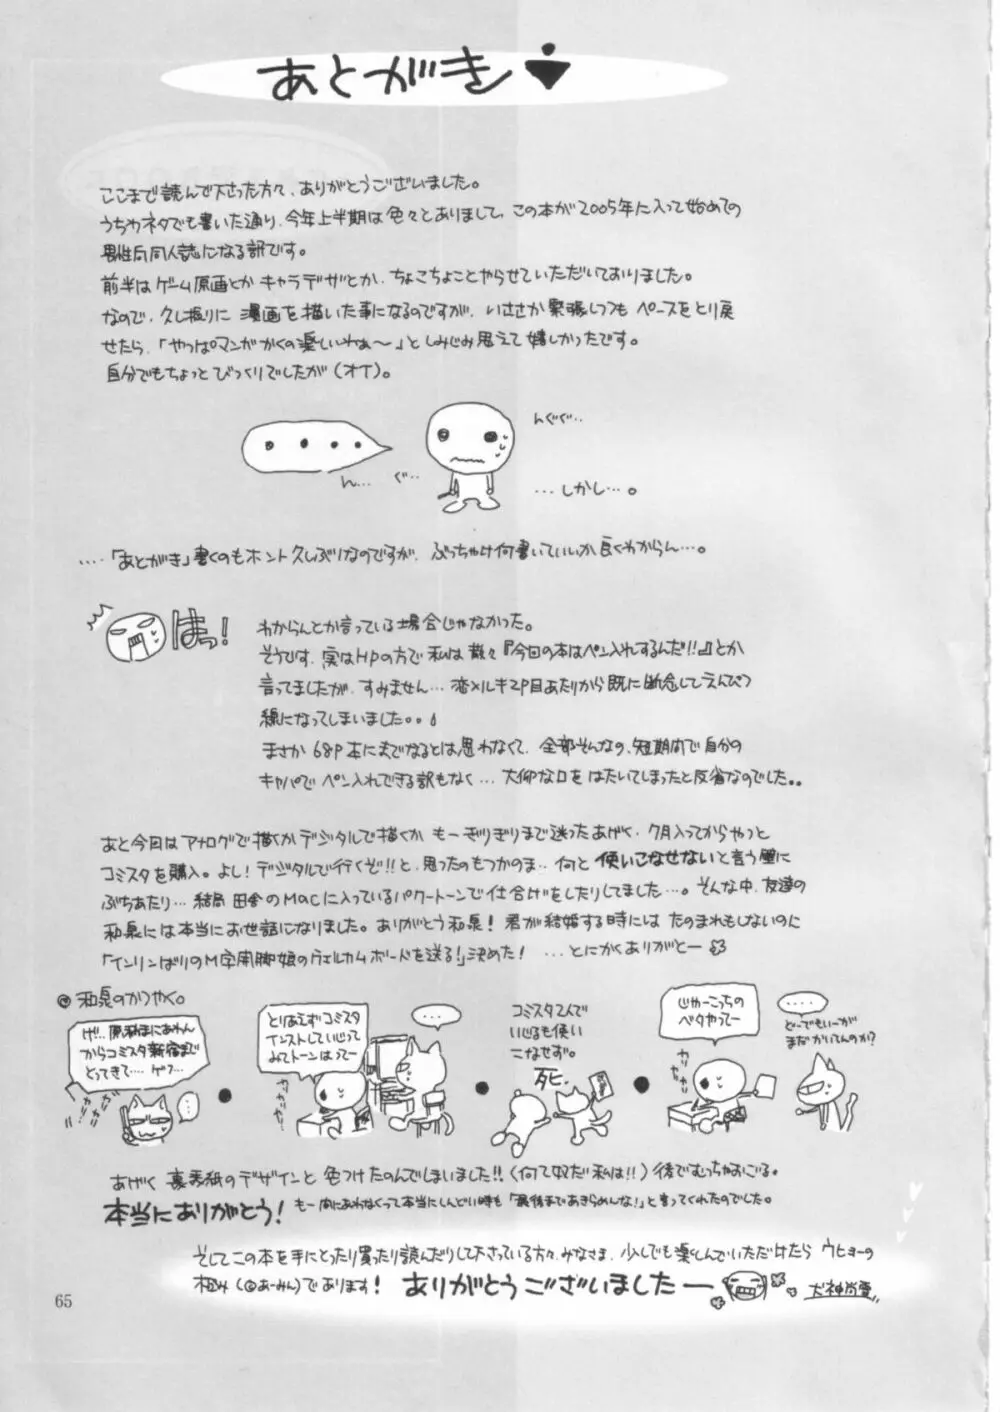 あとがき
ここまで読んで下さった方々、ありがとうございました。
うちわネタでも書いた通り、今年上半期は色々とありまして、この本が2005年に入って始めての
男性向同人誌になる訳です。
前半はゲーム原画とかキャラデザとか、ちょこちょことやらせていただいておりました。
なので、久し振りに漫画を描いた事になるのですが、いささか緊張しつつもペースをとり戻
せたら、「やっぱマンガかくの楽しいわぁ〜」としみじみ思えて嬉しかったです。
自分でもちょっとびっくりでしたが(オイ)。
・・・・
んぐぐ…
ん… ぐ…
…しかし…。
‥‥「あとがき」書くのもホント久しぶりなのですが、ぶっちゃけ何書いていいか良くわからん…。
はっ!
わからんとか言っている場合じゃなかった。
そうです、実はHPの方で私は散々『今回の本はペン入れするんだ!!』とか
言ってましたが、すみません…恋×ルキ2P目あたりから既に断念してえんぴつ
線になってしまいました。。
まさか68P本にまでなるとは思わなくて、全部そんなの、短期間で自分の
キャパでペン入れできる訳もなく…大仰な口をはたいてしまったと反省なのでした。。
あと今回はアナログで描くかデジタルで描くかもーぎりぎりまで迷ったあげく、7月入ってからやっと
コミスタを購入。よし!デジタルで行くぞ!!と、思ったのもつかのま‥何と使いこなせないと言う壁に
ぶちあたり…結局田舎のMacに入っているパワートーンで仕上げをしたりしてました…。そんな中、友達の
和泉には本当にお世話になりました。ありがとう和泉!君が結婚する時にはたのまれもしないのに
「インリンばりのM字開脚娘のウェルカムボードを送る!」決めた! …とにかくありがとー
和泉のかつやく。
げ!!..原稿まにあわん
からコミスタ新宿まで
とってきて…. ゲフ…
…
とりあえずコミスタ
インストして、いじって
みてトーンはってー
…
コミスタてんで
いじるも使い
こなせず。
死.
じゃーこっちの
ベタやってー
カリカリ
‥‥
どーでもいーが
まだかいてんのか?
あげく裏表紙のデザインと色つけたのんでしまいました!!(何て奴だ私は!!)後でむっちゃおごる。
本当にありがとう! もー間にあわなくって本当にしんどい時も「最後まであきらめんな!」と言ってくれたのでした。
そしてこの本を手にとったり買ったり読んだりして下さっている方々、みなさま、少しでも楽しんでいただけたらウヒョーの
極み(©あーみん)であります! ありがとうございましたー
65